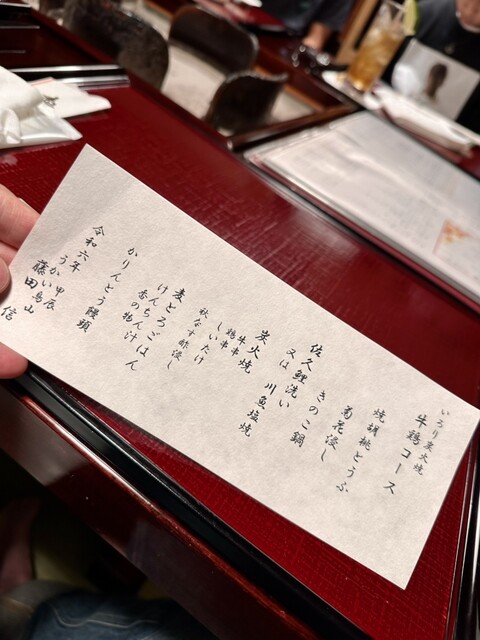 いろり炭火焼
牛鶏コース
焼胡桃とうふ
菊花浸し
きのこ鍋
佐久鯉洗い
又は 川魚塩焼
炭火焼
牛串
鶏串
しいたけ
秋なす酢浸し
麦とろごはん
けんちん汁
香の物
かりんとう饅頭
令和六年 甲辰
うかい鳥山
藤田 信